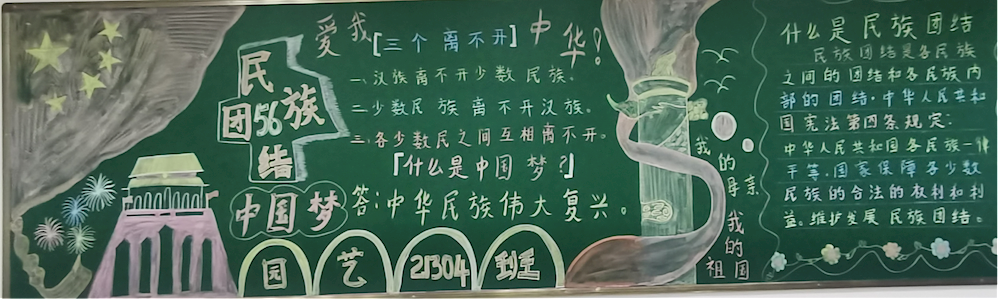 爱我中华!
民族
团56
结
中国梦
[三个离不开]
一、汉族离不开少数民族。
二、少数民族离不开汉族。
三、各少数民之间互相离不开。
「什么是中国梦?」
答:中华民族伟大复兴。
园艺21304班
我的母亲
我的祖国
什么是民族团结
民族团结是各民族
之间的团结和各民族内
部的团结,中华人民共和
国宪法第四条规定:
中华人民共和国各民族一律
平等,国家保障各少数
民族的合法的权利和利
益。维护发展民族团结。